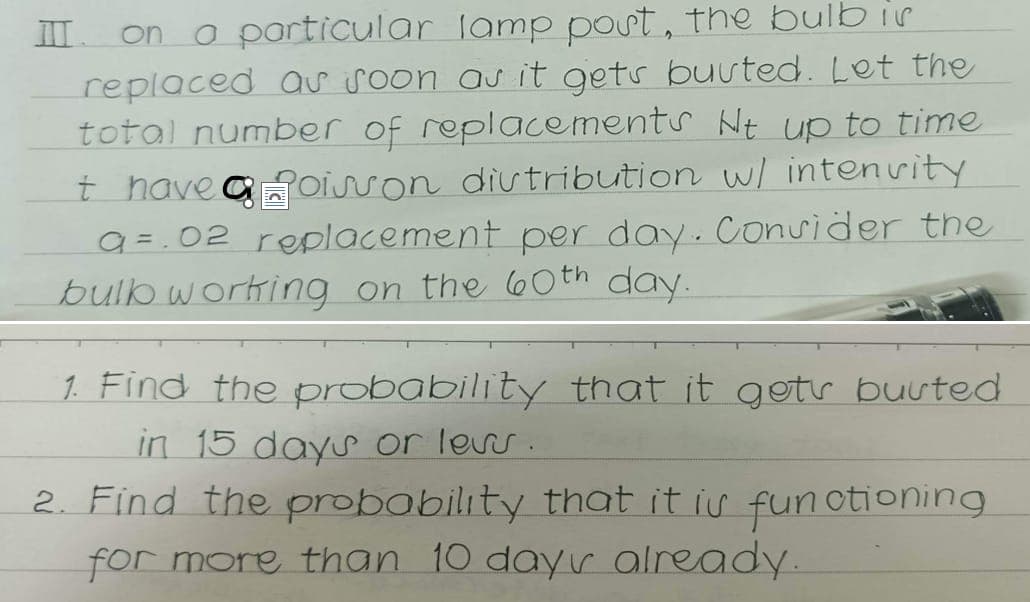 III. on a particular lamp post, the bulb is
replaced as soon as it gets busted. Let the
total number of replacements Nt up to time
t have a Poisson distribution w/ intensity
a = .02 replacement per day. Consider the
bulb working on the 60th day.
1. Find the probability that it gets busted
in 15 days or less.
2. Find the probability that it is functioning
for more than 10 days already.